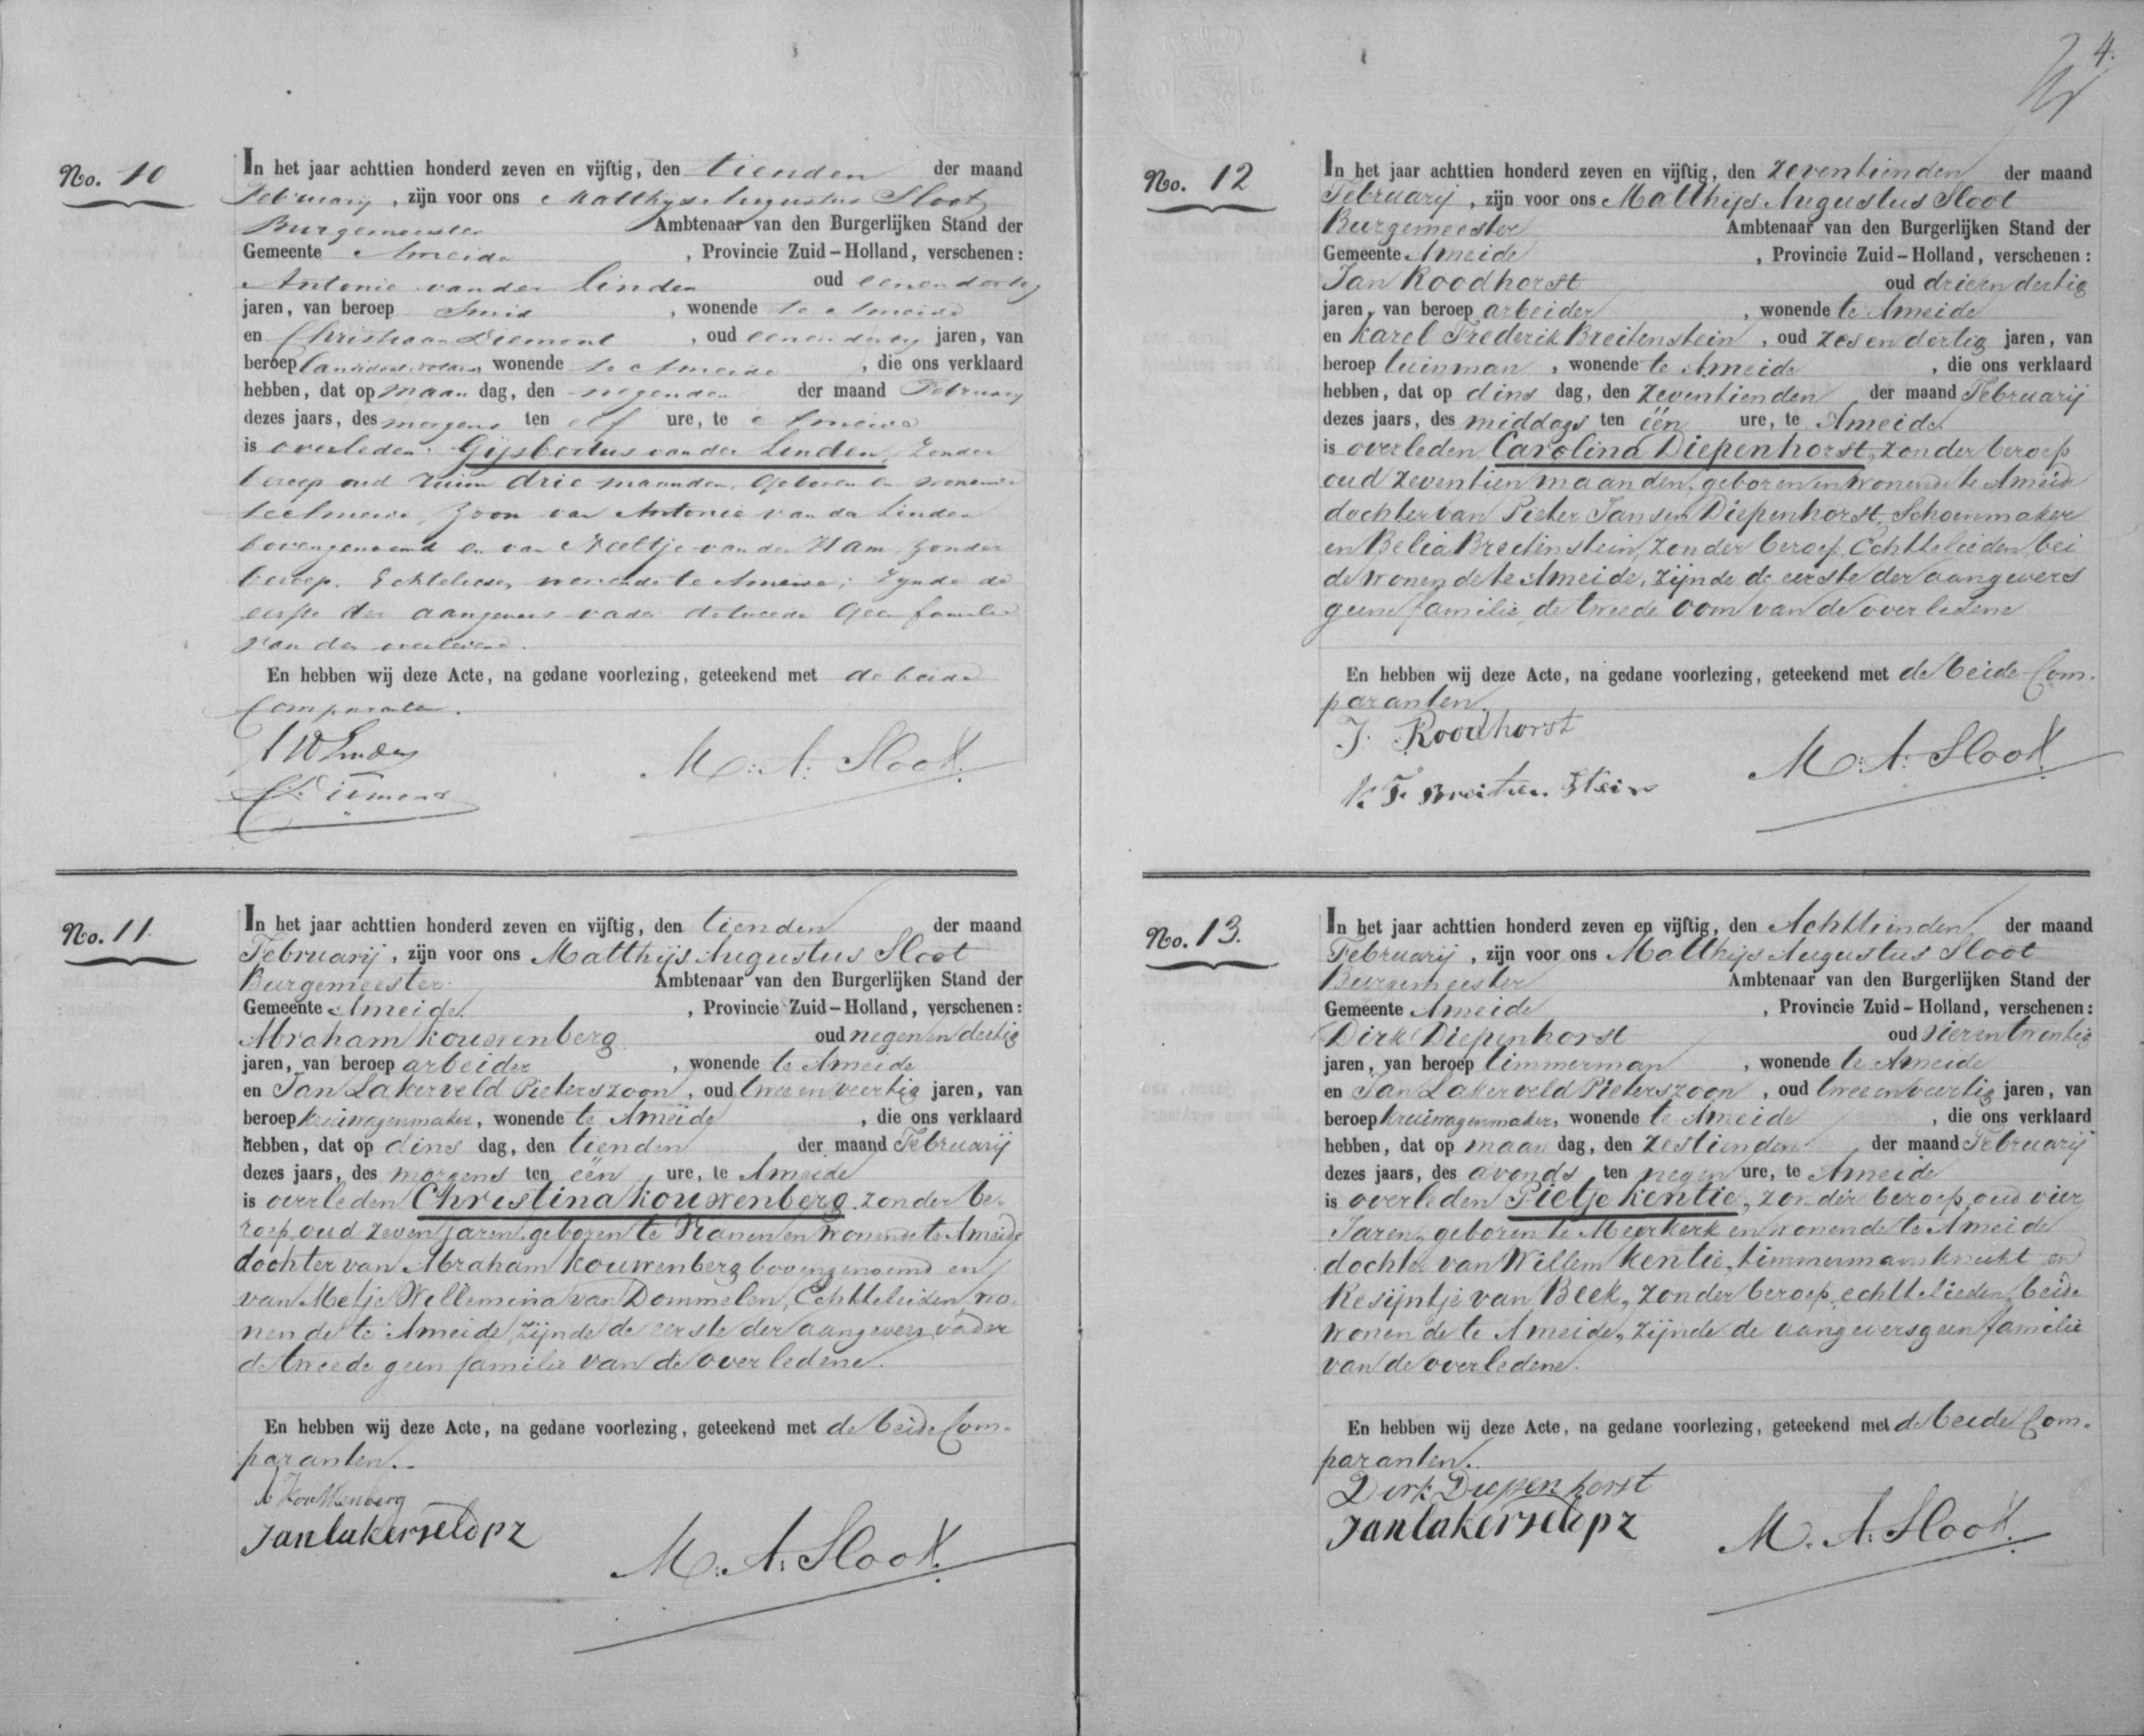 No. 10
In het jaar achttien honderd zeven en vijftig, den tienden der maand
Februarij, zijn voor ons Matthijs Augustus Sloot
Burgemeester Ambtenaar van den Burgerlijken Stand der
Gemeente Ameide, Provincie Zuid-Holland, verschenen:
Antonie van der Linden oud eenendertig
jaren, van beroep Smid, wonende te Ameide
en Christiaan Diemont, oud eenendertig jaren, van
beroep Candidaat notaris, wonende te Ameide, die ons verklaard
hebben, dat op maan dag, den negenden der maand Februarij
dezes jaars, des morgens ten elf ure, te Ameide
is overleden Gijsbertus van der Linden, zonder
beroep oud ruim drie maanden, geboren en wonende
te Ameide, Zoon van Antonie van der Linden
bovengenoemd en van Neeltje van der Ham, zonder
beroep. Echtelieden, wonende te Ameide; zynde de
eerste der aangevers vader de tweede geen familie
van den overledene.
En hebben wij deze Acte, na gedane voorlezing, geteekend met de beide
Comparanten.
C. Diemont
M: A: Sloot.
No. 11.
In het jaar achttien honderd zeven en vijftig, den tienden der maand
Februarij, zijn voor ons Matthijs Augustus Sloot
Burgemeester Ambtenaar van den Burgerlijken Stand der
Gemeente Ameide, Provincie Zuid-Holland, verschenen:
Abraham Kouwenberg oud negenendertig
jaren, van beroep arbeider, wonende te Ameide
en Jan Lakerveld Pieterszoon, oud tweeenveertig jaren, van
beroep kruiwagenmaker, wonende te Ameide, die ons verklaard
hebben, dat op dins dag, den tienden der maand Februarij
dezes jaars, des morgens ten één ure, te Ameide
is overleden Christina Kouwenberg, zonder be-
roep, oud zeven jaren, geboren te Vianen en wonende te Ameide
dochter van Abraham Kouwenberg bovengenoemd en
van Metje Willemina van Dommelen, Echtelieden, wo-
nende te Ameide, zijnde de eerste der aangevers vader
de tweede geen familie van de overledene.
En hebben wij deze Acte, na gedane voorlezing, geteekend met de beide Com-
paranten.
A Kouwenberg
Jan lakerveld pz
M: A: Sloot.
4.
No. 12
In het jaar achttien honderd zeven en vijftig, den zeventienden der maand
Februarij, zijn voor ons Matthijs Augustus Sloot
Burgemeester Ambtenaar van den Burgerlijken Stand der
Gemeente Ameide, Provincie Zuid-Holland, verschenen:
Jan Roodhorst oud drieendertig
jaren, van beroep arbeider, wonende te Ameide
en Karel Frederik Breitenstein, oud zesendertig jaren, van
beroep tuinman, wonende te Ameide, die ons verklaard
hebben, dat op dins dag, den zeventienden der maand Februarij
dezes jaars, des middags ten één ure, te Ameide
is overleden Carolina Diepenhorst, zonder beroep
oud zeventien maanden, geboren en wonende te Ameide
dochter van Pieter Jansen Diepenhorst, Schoenmaker
en Belia Breitenstein, zonder beroep, Echtelieden, bei
de wonende te Ameide, zijnde de eerste der aangevers
geene familie, de tweede oom van de overledene
En hebben wij deze Acte, na gedane voorlezing, geteekend met de beide Com-
paranten.
J. Roodhorst
K F Breitenstein
M: A: Sloot.
No. 13.
In het jaar achttien honderd zeven en vijftig, den Achttienden der maand
Februarij, zijn voor ons Matthijs Augustus Sloot
Burgemeester Ambtenaar van den Burgerlijken Stand der
Gemeente Ameide, Provincie Zuid-Holland, verschenen:
Dirk Diepenhorst oud vierentwintig
jaren, van beroep timmerman, wonende te Ameide
en Jan Lakerveld Pieterszoon, oud tweeenveertig jaren, van
beroep kruiwagenmaker, wonende te Ameide, die ons verklaard
hebben, dat op maan dag, den zestienden der maand Februarij
dezes jaars, des avonds ten negen ure, te Ameide
is overleden Pietje Kentie, zonder beroep, oud vier
Jaren, geboren te Meerkerk en wonende te Ameide
dochter van Willem Kentie, timmermansknecht en
Kesijntje van Beek, zonder beroep, echtelieden, beide
wonende te Ameide, zijnde de aangevers geen familie
van de overledene.
En hebben wij deze Acte, na gedane voorlezing, geteekend met de beide Com-
paranten.
Dirk Diepenhorst
Jan lakerveld pz
M. A: Sloot.